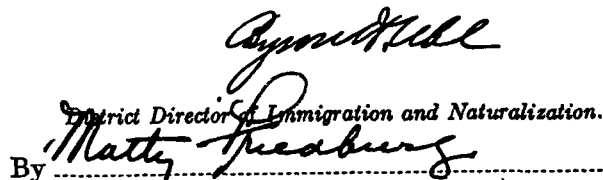 Byron H. Uhl
District Director of Immigration and Naturalization.
By Matty Friedburg